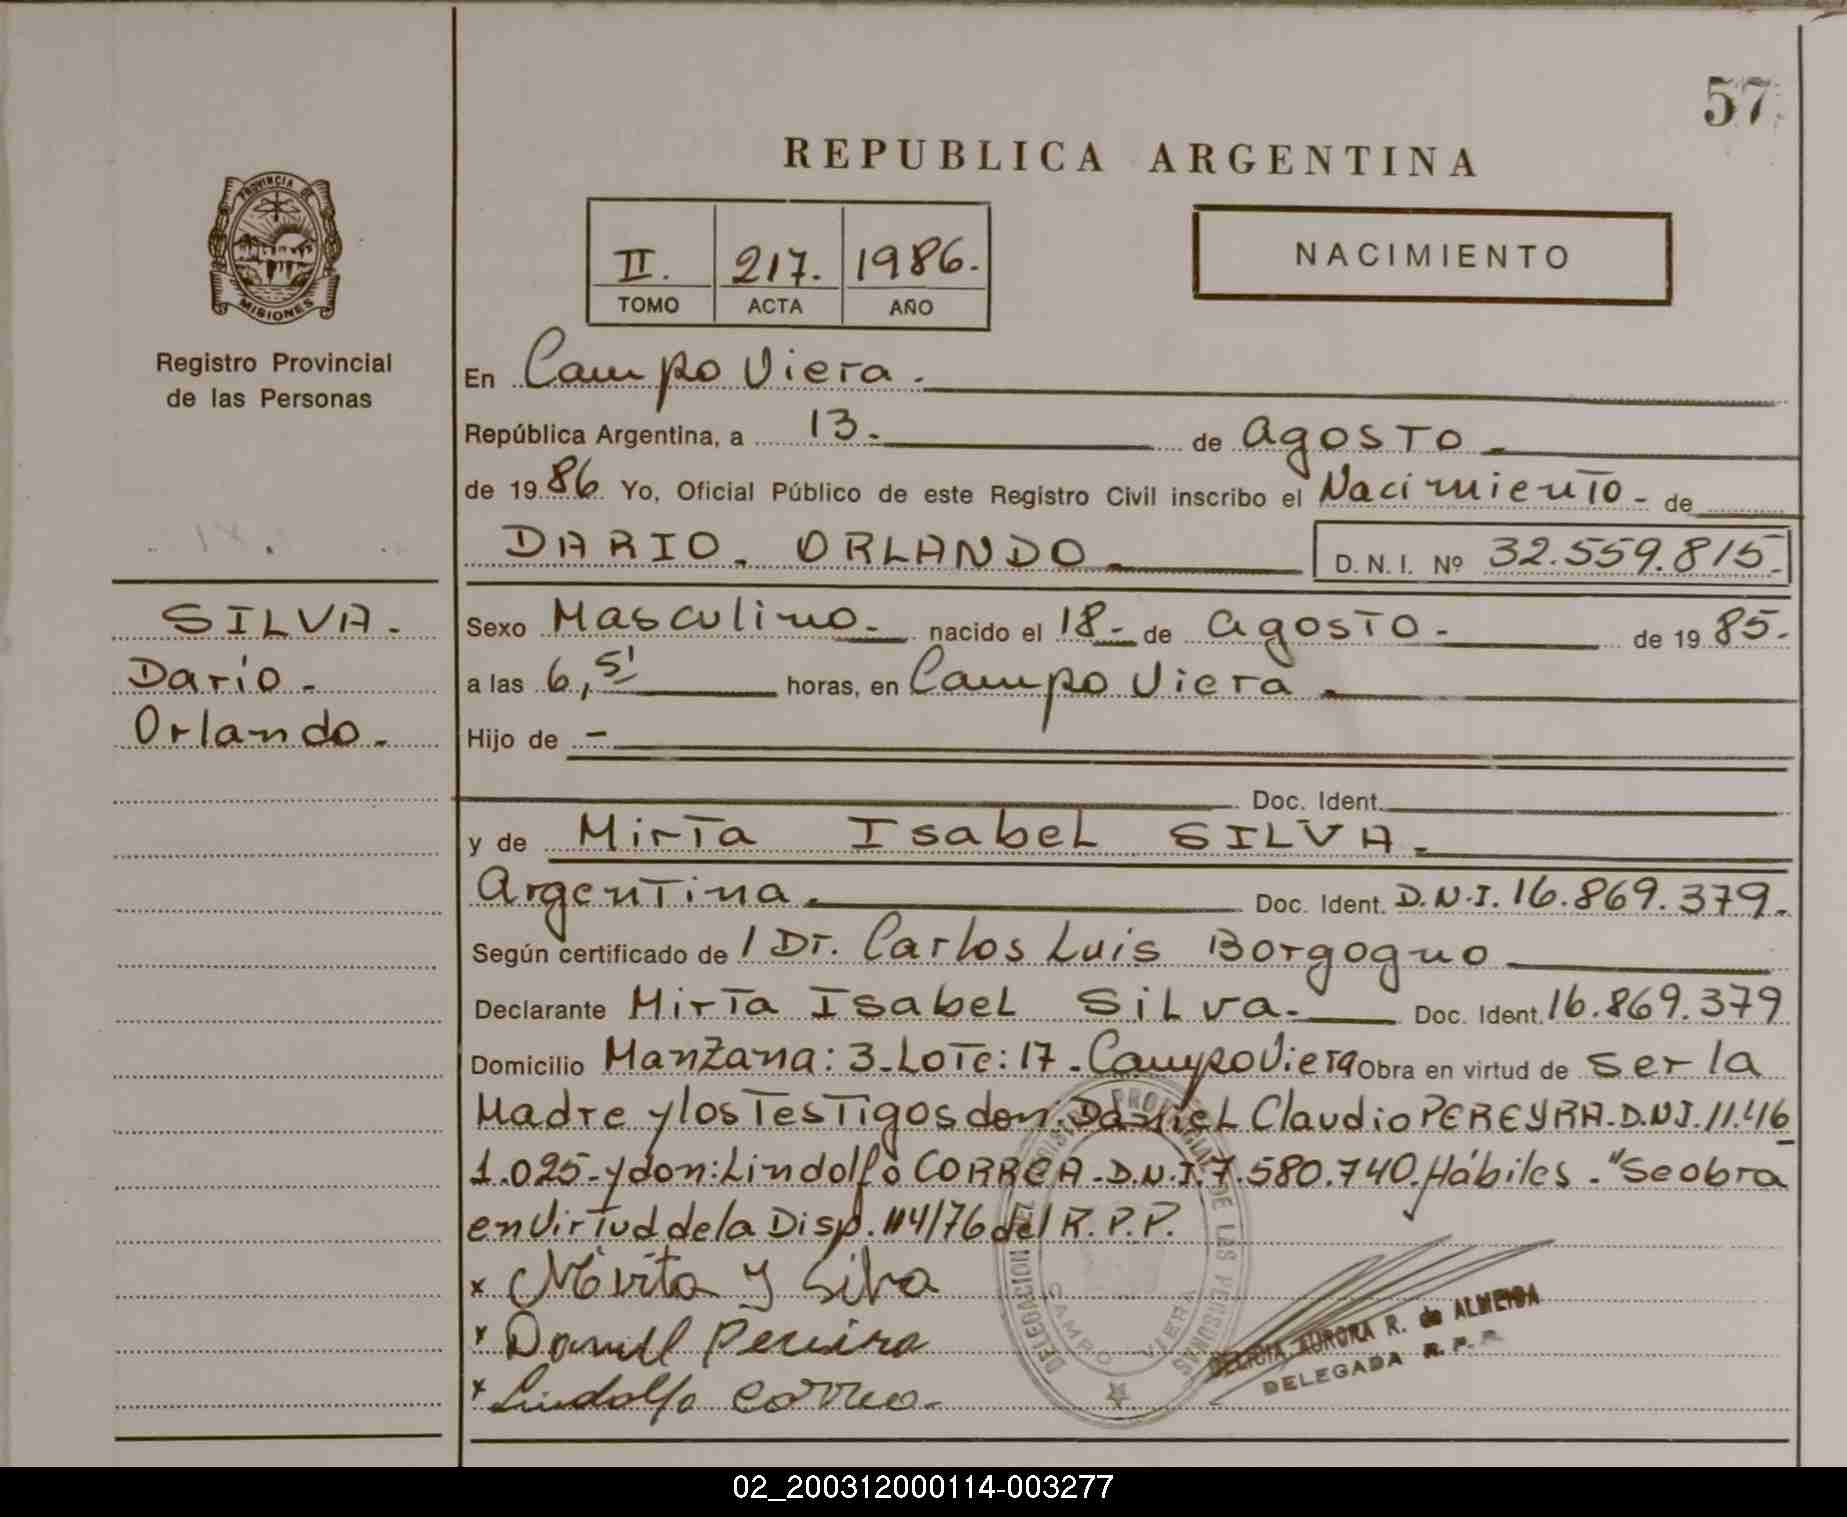 57
REPUBLICA ARGENTINA
PROVINCIA DE
MISIONES
Registro Provincial
de las Personas
II. 217. 1986.
TOMO ACTA AÑO
NACIMIENTO
En Campo Viera.
República Argentina, a 13. de Agosto
de 1986. Yo, Oficial Público de este Registro Civil inscribo el Nacimiento - de
DARIO. ORLANDO D. N. I. Nº 32.559.815.
SILVA.
Dario.
Orlando.
Sexo Masculino. nacido el 18- de Agosto. de 1985.
a las 6,5' horas, en Campo Viera
Hijo de -
Doc. Ident.
y de Mirta Isabel SILVA.
Argentina. Doc. Ident. D.N.I. 16.869.379.
Según certificado de / Dr. Carlos Luis Borgogno
Declarante Mirta Isabel Silva. Doc. Ident. 16.869.379
Domicilio Manzana: 3-Lote: 17-Campo Viera Obra en virtud de ser la
Madre y los Testigos don: Daniel Claudio PEREYRA-D.N.I. 11.416
1.025-y don: Lindolfo CORREA-D.N.I. 7.580.740. Hábiles. "Se obra
en virtud de la Disp. 114/76 del R.P.P.
x Mirta Y Silva
x Daniel Pereira
x Lindolfo Correa.
DELEGACION DEL REGISTRO PROVINCIAL DE LAS PERSONAS
CAMPO VIERA
DELICIA AURORA R. de ALMEIDA
DELEGADA R. P. P.
02_200312000114-003277